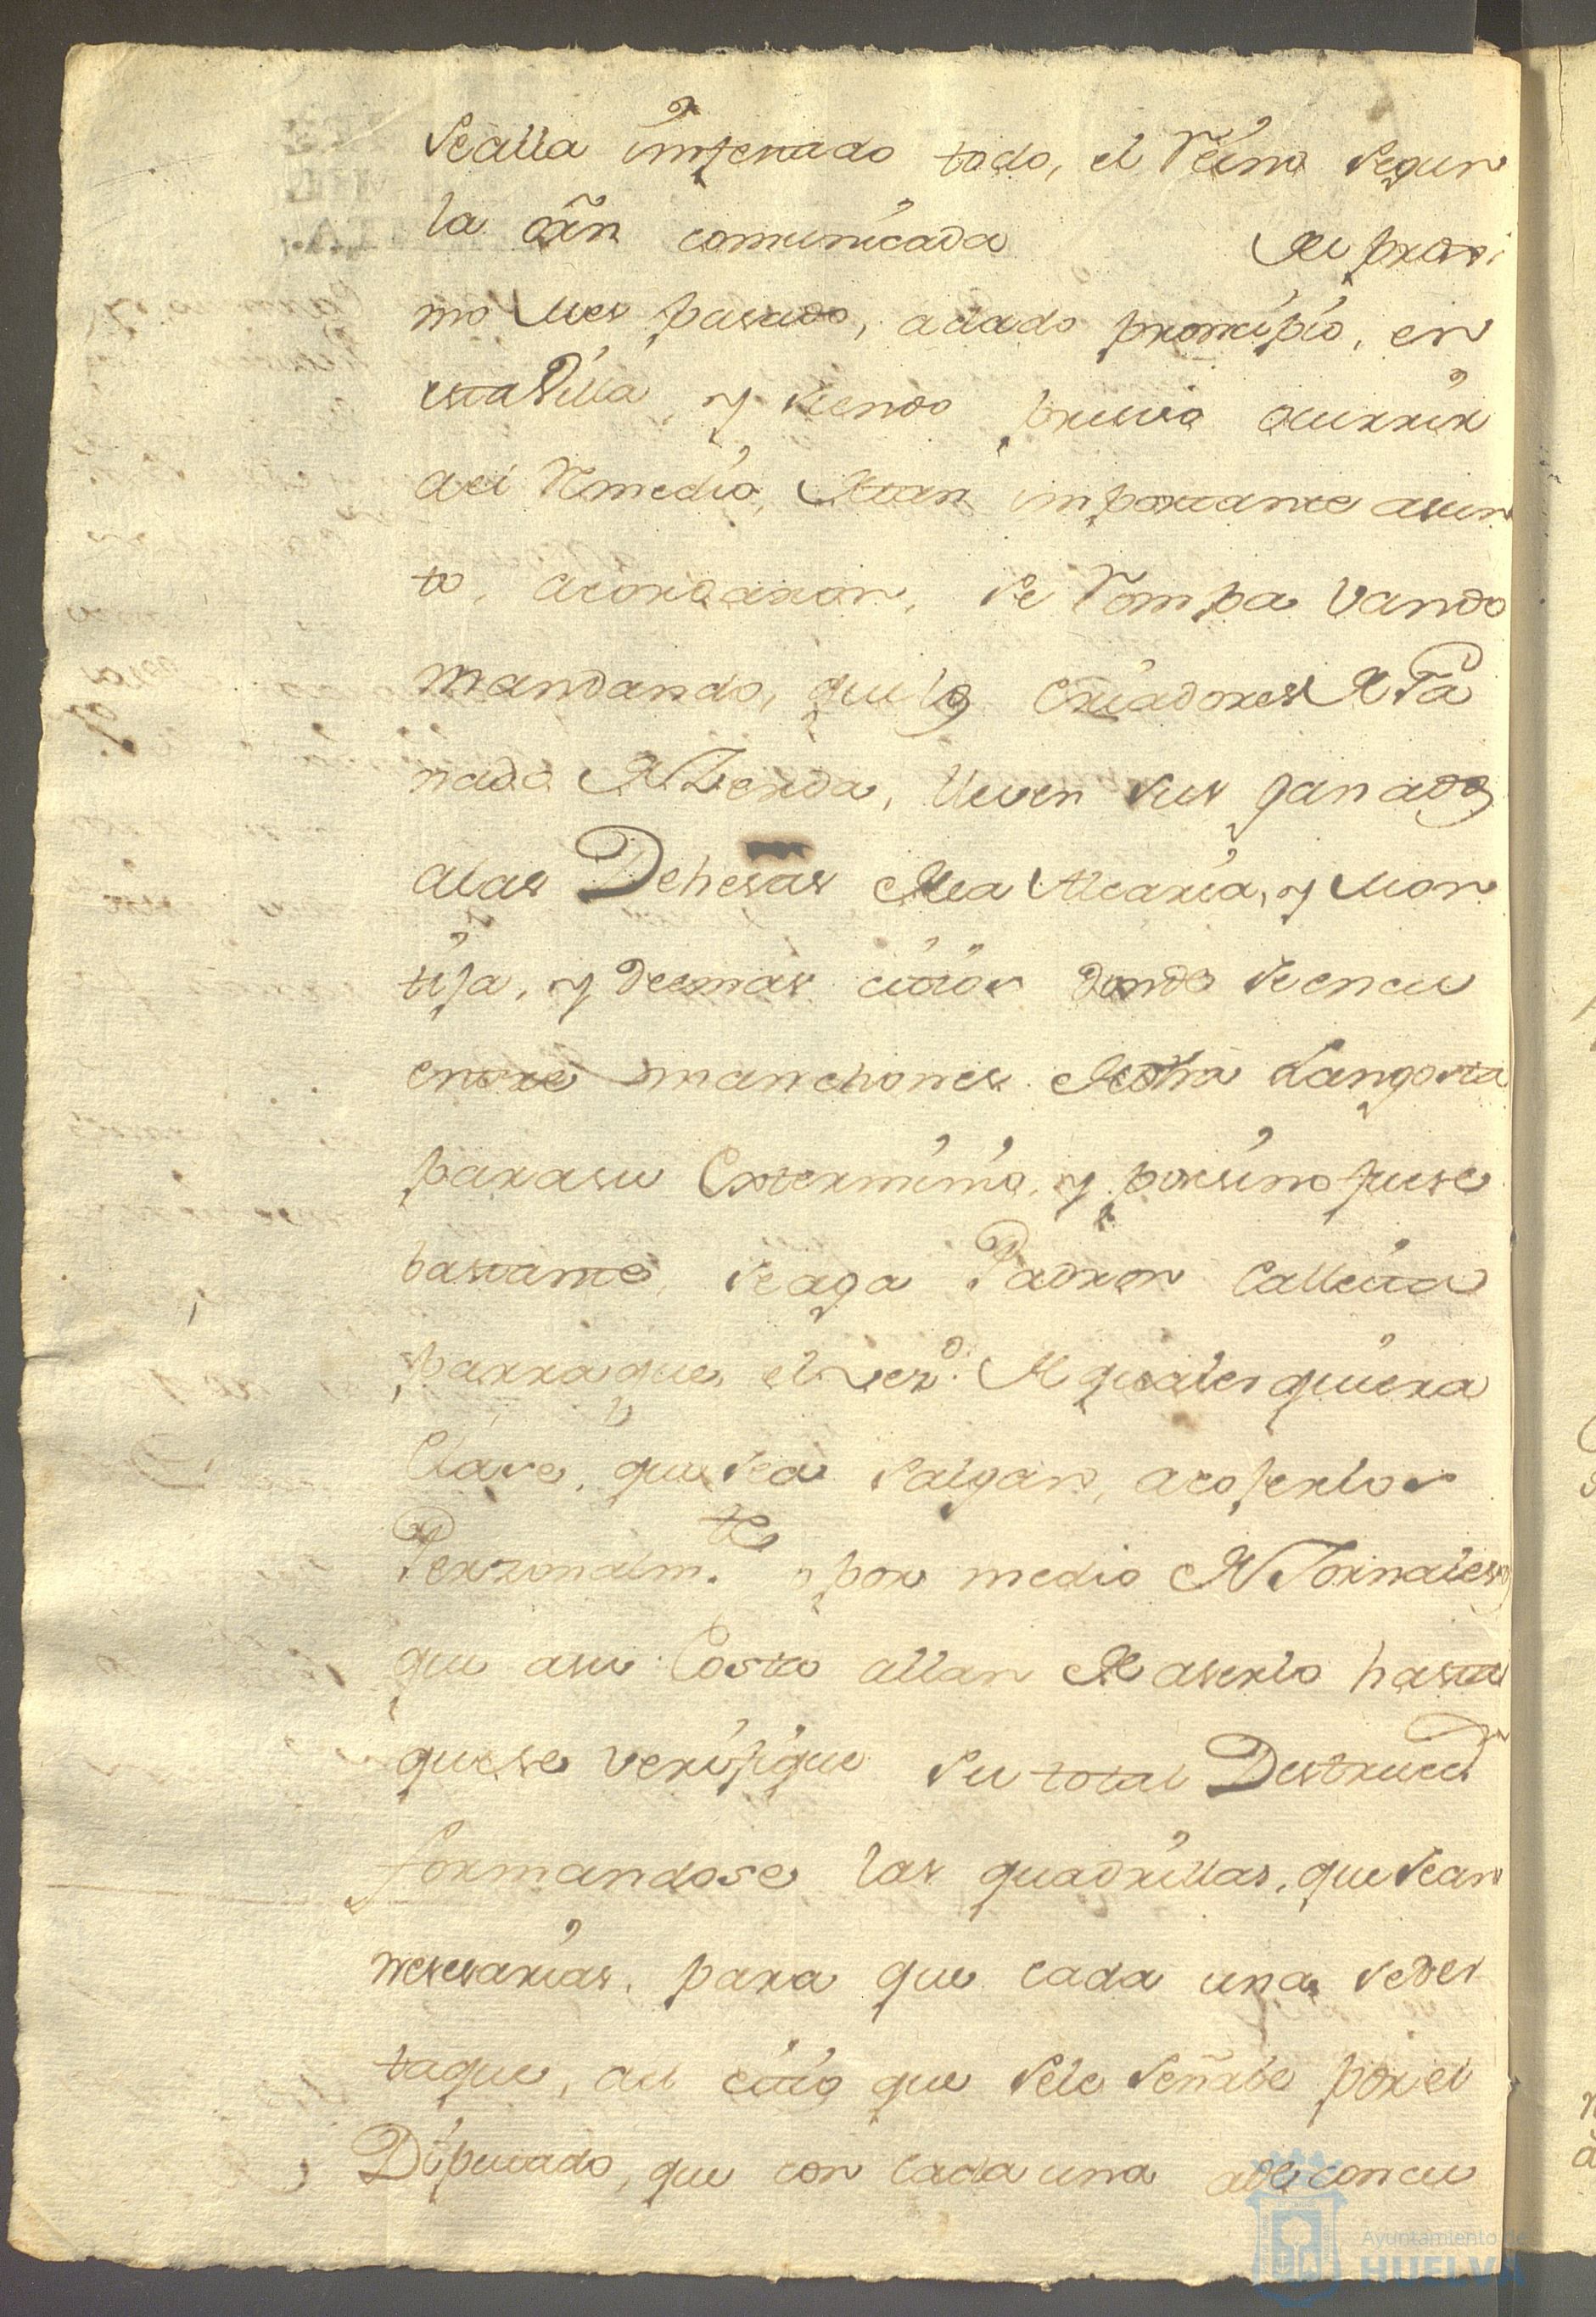 se alla imfestado todo, el Reino segun
la orñ comunicada del proxi
mo Mes pasado, adado principio, en
esta Villa, y siendo presiso ocurrir
ael Remedio, de tan importante asun
to, acordaron, se Rompa Vando
mandando, que los Criadores de Ga
nado de Zerda, lleven sus ganados
alas Dehesas de la Alcaria, y Mon
tija, y deemas citios donde se encu
entre manchones de otra Langosta
parasu Extterminio, y porsino fuese
bastante, se aga Padron Callecita
parra que, el vezo. de qualesquiera
Clase, que sea salgan, acojerlos
Perzonalmte. y por medio de Jornales,
que asu Costa allan de aserlo hasta
quese verifique su total Destruccn
formandose las quadrillas, que sean
nesesarias, para que cada una sedes
taque, ael citio que sele señale por el
Diputado, que con cada una ade concu
Ayuntamiento de
HUELVA